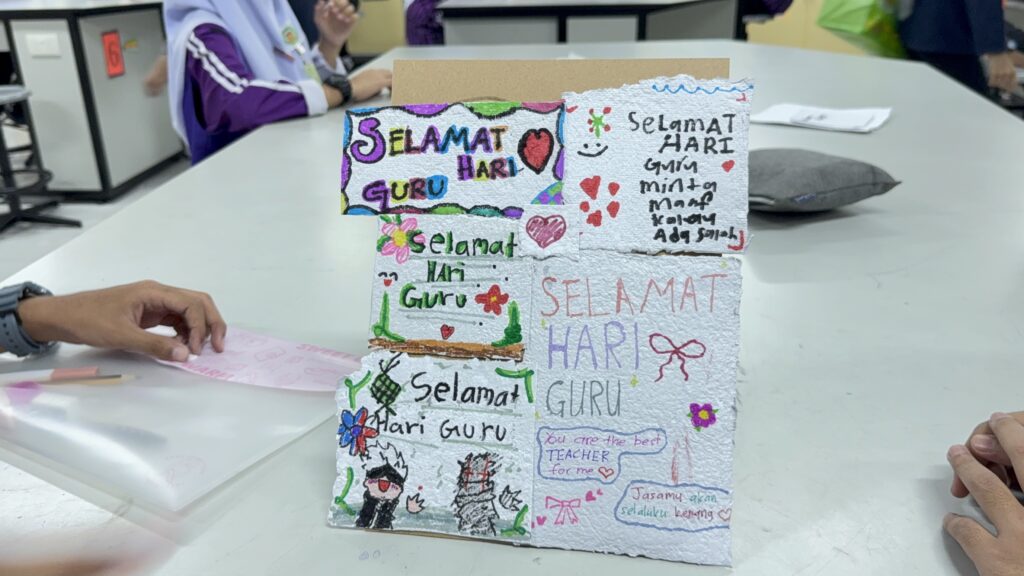 SELAMAT
HARI
GURU
SELAMAT
HARI
Guru
minta
maaf
kalau
Ada Salah
Selamat
Hari
Guru
SELAMAT
HARI
GURU
You are the best
TEACHER
for me
Jasamu akan
selaluku kenang
Selamat
Hari Guru
6